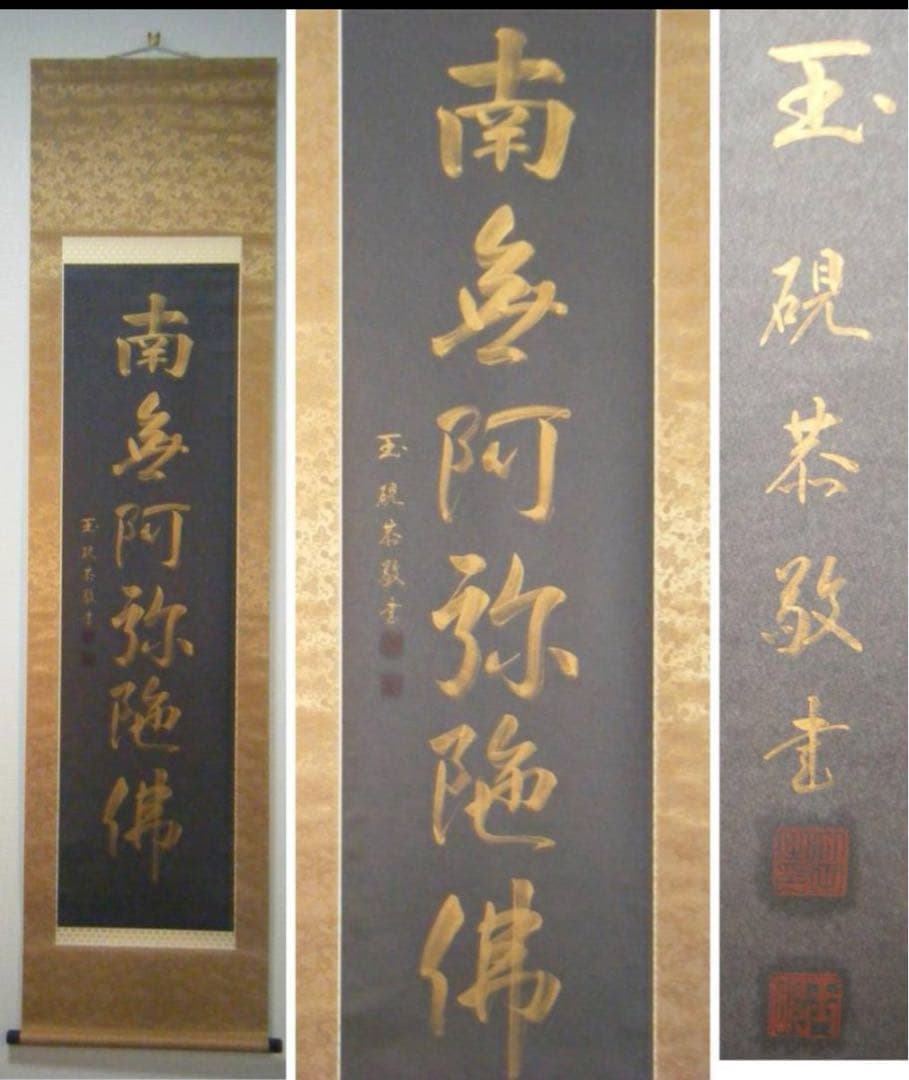 南無阿弥陁佛
玉硯恭敬書
南無阿弥陁佛
玉硯恭敬書
玉硯恭敬書